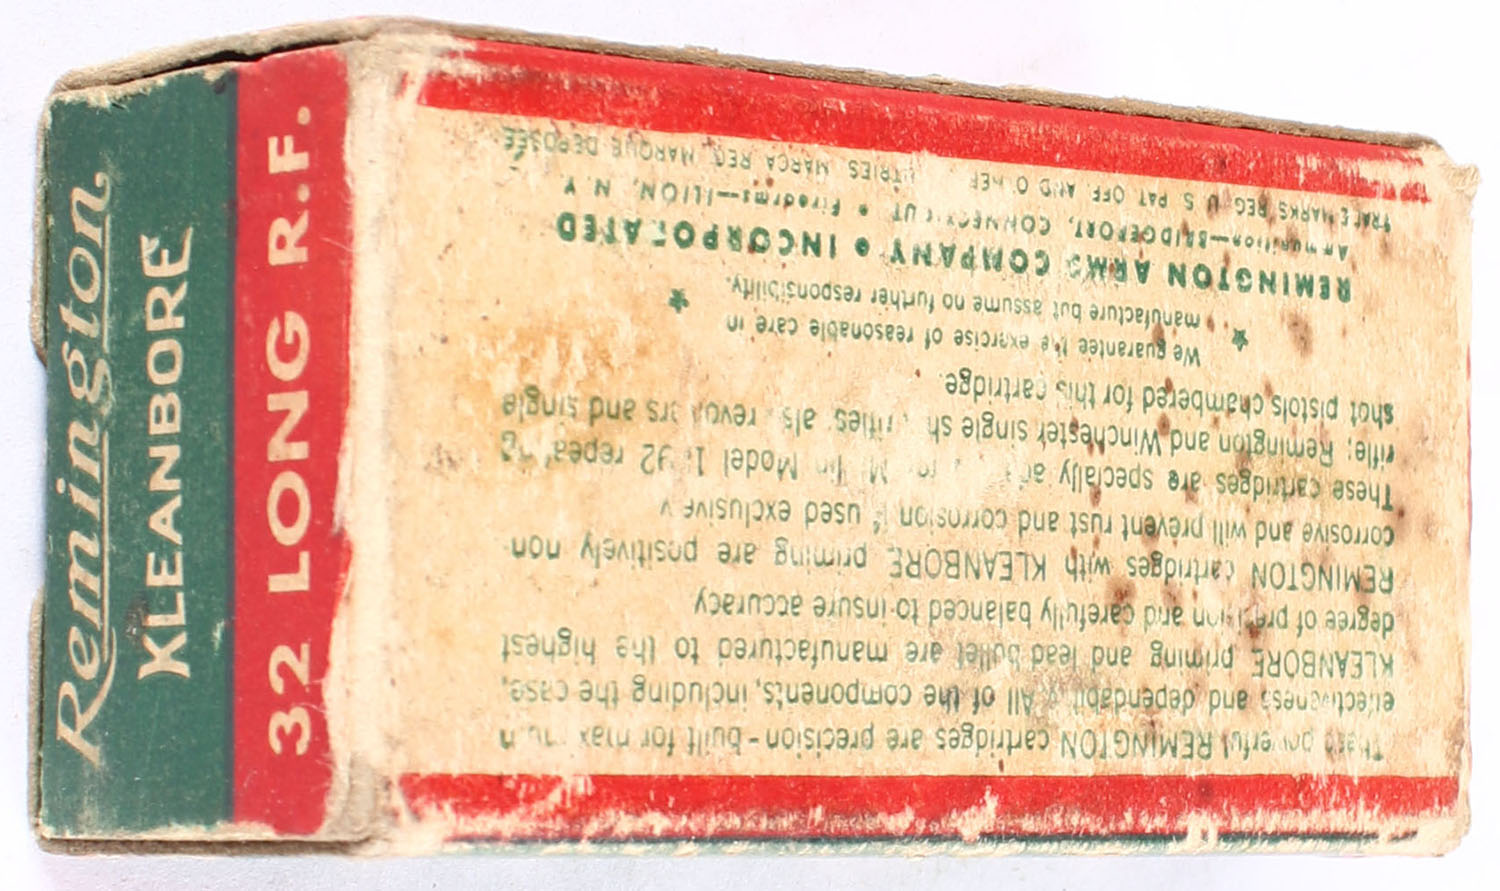 Remington
KLEANBORE
32 LONG R.F.
These powerful REMINGTON cartridges are precision-built for maximum
effectiveness and dependability. All of the components, including the case,
KLEANBORE priming and lead bullet are manufactured to the highest
degree of precision and carefully balanced to insure accuracy
REMINGTON cartridges with KLEANBORE priming are positively non
corrosive and will prevent rust and corrosion if used exclusively
These cartridges are specially Model 1892 repeating
rifle; Remington and Winchester single shot rifles, also revolvers and single
shot pistols chambered for this cartridge.
We guarantee the exercise of reasonable care in
manufacture but assume no further responsibility.
REMINGTON ARMS COMPANY • INCORPORATED
Ammunition—BRIDGEPORT, CONNECTICUT • Firearms—ILION, N. Y.
TRADE MARKS REG U S PAT OFF. AND OTHER COUNTRIES MARCA REG. MARQUE DEPOSÉE